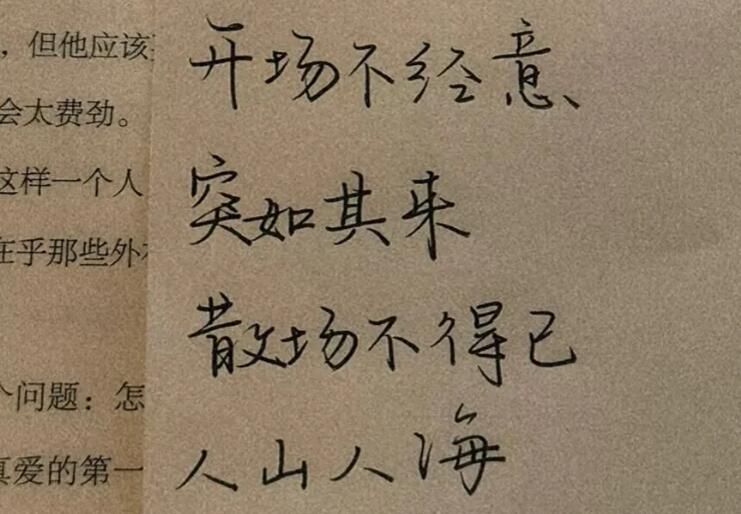 ，但他应该
会太费劲。
这样一个人
在乎那些外
个问题：怎
真爱的第一
开场不经意
突如其来
散场不得已
人山人海